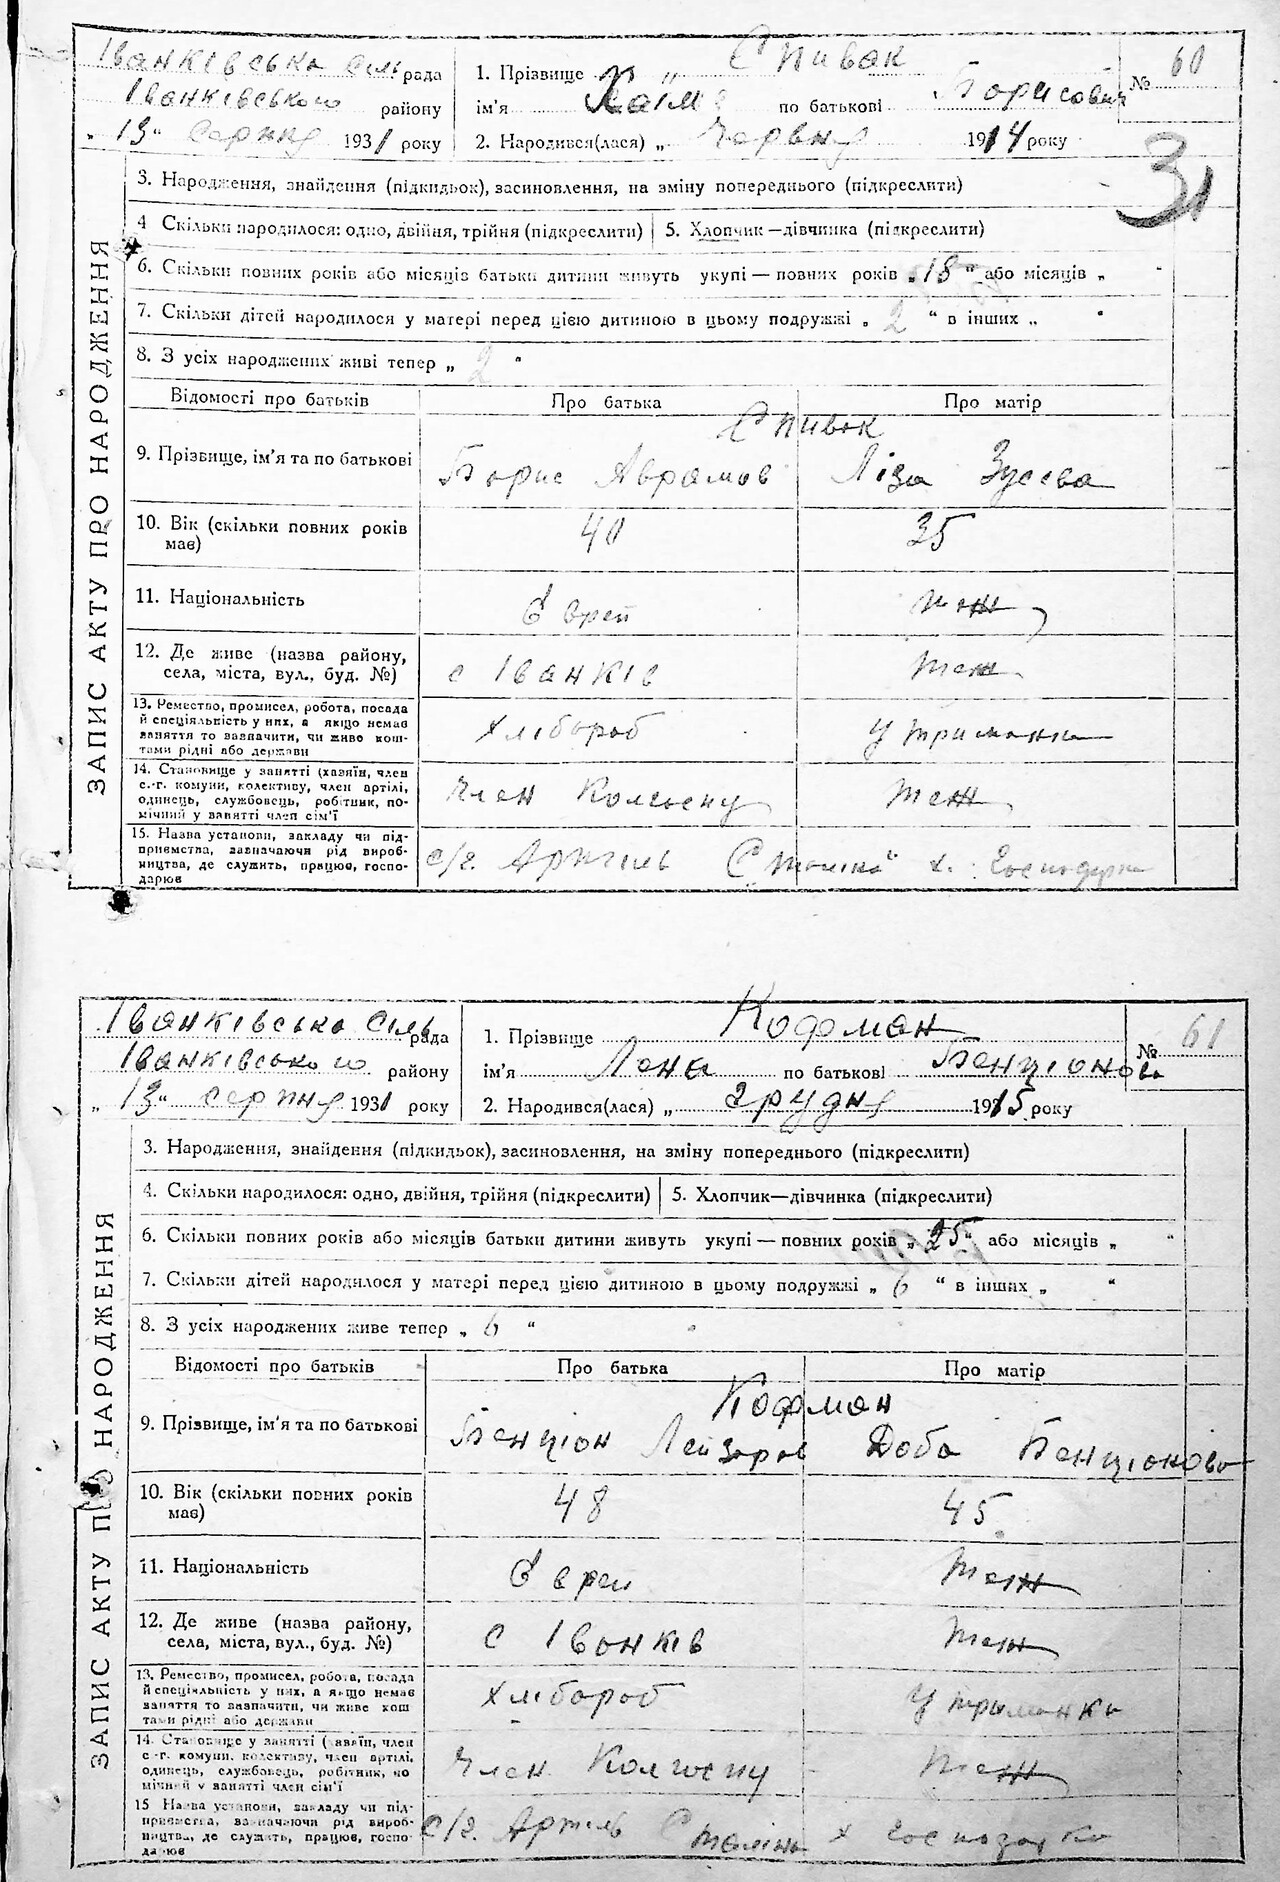 Іванківська сіль рада
Іванківського району
„ 13 “ Серпня 1931 року
1. Прізвище „ Спивак
ім'я Хаїм по батькові Борисович
2. Народився(лася) „ Червня 1914 року
№ 60
31
ЗАПИС АКТУ ПРО НАРОДЖЕННЯ
3. Народження, знайдення (підкидьок), засиновлення, на зміну попереднього (підкреслити)
4 Скільки народилося: одно, двійня, трійня (підкреслити)
5. Хлопчик—дівчинка (підкреслити)
6. Скільки повних років або місяців батьки дитини живуть укупі — повних років „ 18 “ або місяців „ “
7. Скільки дітей народилося у матері перед цією дитиною в цьому подружжі „ 2 “ в інших „ “
8. З усіх народжених живі тепер „ 2 “
Відомості про батьків Про батька Про матір
Спивак
9. Прізвище, ім'я та по батькові Борис Аврамов Ліза Зусева
10. Вік (скільки повних років має) 40 35
11. Національність Єврей теж
12. Де живе (назва району, села, міста, вул., буд. №) с Іванків теж
13. Ремество, промисел, робота, посада
й спеціяльність у них, а якщо немає
заняття то зазначити, чи живе кош-
тами рідні або держави
Хлібороб Утриманка
14. Становище у занятті (хазяїн, член
с.-г. комуни, колективу, член артілі,
одинець, службовець, робітник, по-
мічний у занятті член сім'ї
Член Колгоспу теж
15. Назва установи, закладу чи під-
приємства, зазначаючи рід вироб-
ництва, де служить, працює, госпо-
дарює
с/г. Артіль Сталіна х. Господарка
Іванківська сіль рада
Іванківського району
„ 13 “ серпня 1931 року
1. Прізвище Кофман
ім'я Лена по батькові Бенціонова
2. Народився(лася) „ грудня 1915 року
№ 61
ЗАПИС АКТУ ПРО НАРОДЖЕННЯ
3. Народження, знайдення (підкидьок), засиновлення, на зміну попереднього (підкреслити)
4. Скільки народилося: одно, двійня, трійня (підкреслити)
5. Хлопчик—дівчинка (підкреслити)
6. Скільки повних років або місяців батьки дитини живуть укупі — повних років „ 25 “ або місяців „ “
7. Скільки дітей народилося у матері перед цією дитиною в цьому подружжі „ 6 “ в інших „ “
8. З усіх народжених живе тепер „ 6 “
Відомості про батьків Про батька Про матір
Кофман
9. Прізвище, ім'я та по батькові Бенціон Лейзоров Доба Бенціонова
10. Вік (скільки повних років має) 48 45
11. Національність Єврей теж
12. Де живе (назва району, села, міста, вул., буд. №) с Іванків теж
13. Ремество, промисел, робота, посада
й спеціяльність у них, а якщо немає
заняття то зазначити, чи живе кош
тами рідні або держави
Хлібороб Утриманка
14. Становище у занятті (хазяїн, член
с-г. комуни, колективу, член артілі,
одинець, службовець, робітник, по
мічний у занятті член сім'ї
Член Колгоспу теж
15 Назва установи, закладу чи під-
приємства, зазначаючи рід вироб-
ництва, де служить, працює, госпо-
дарює
с/г. Артіль Сталіна х Господарка